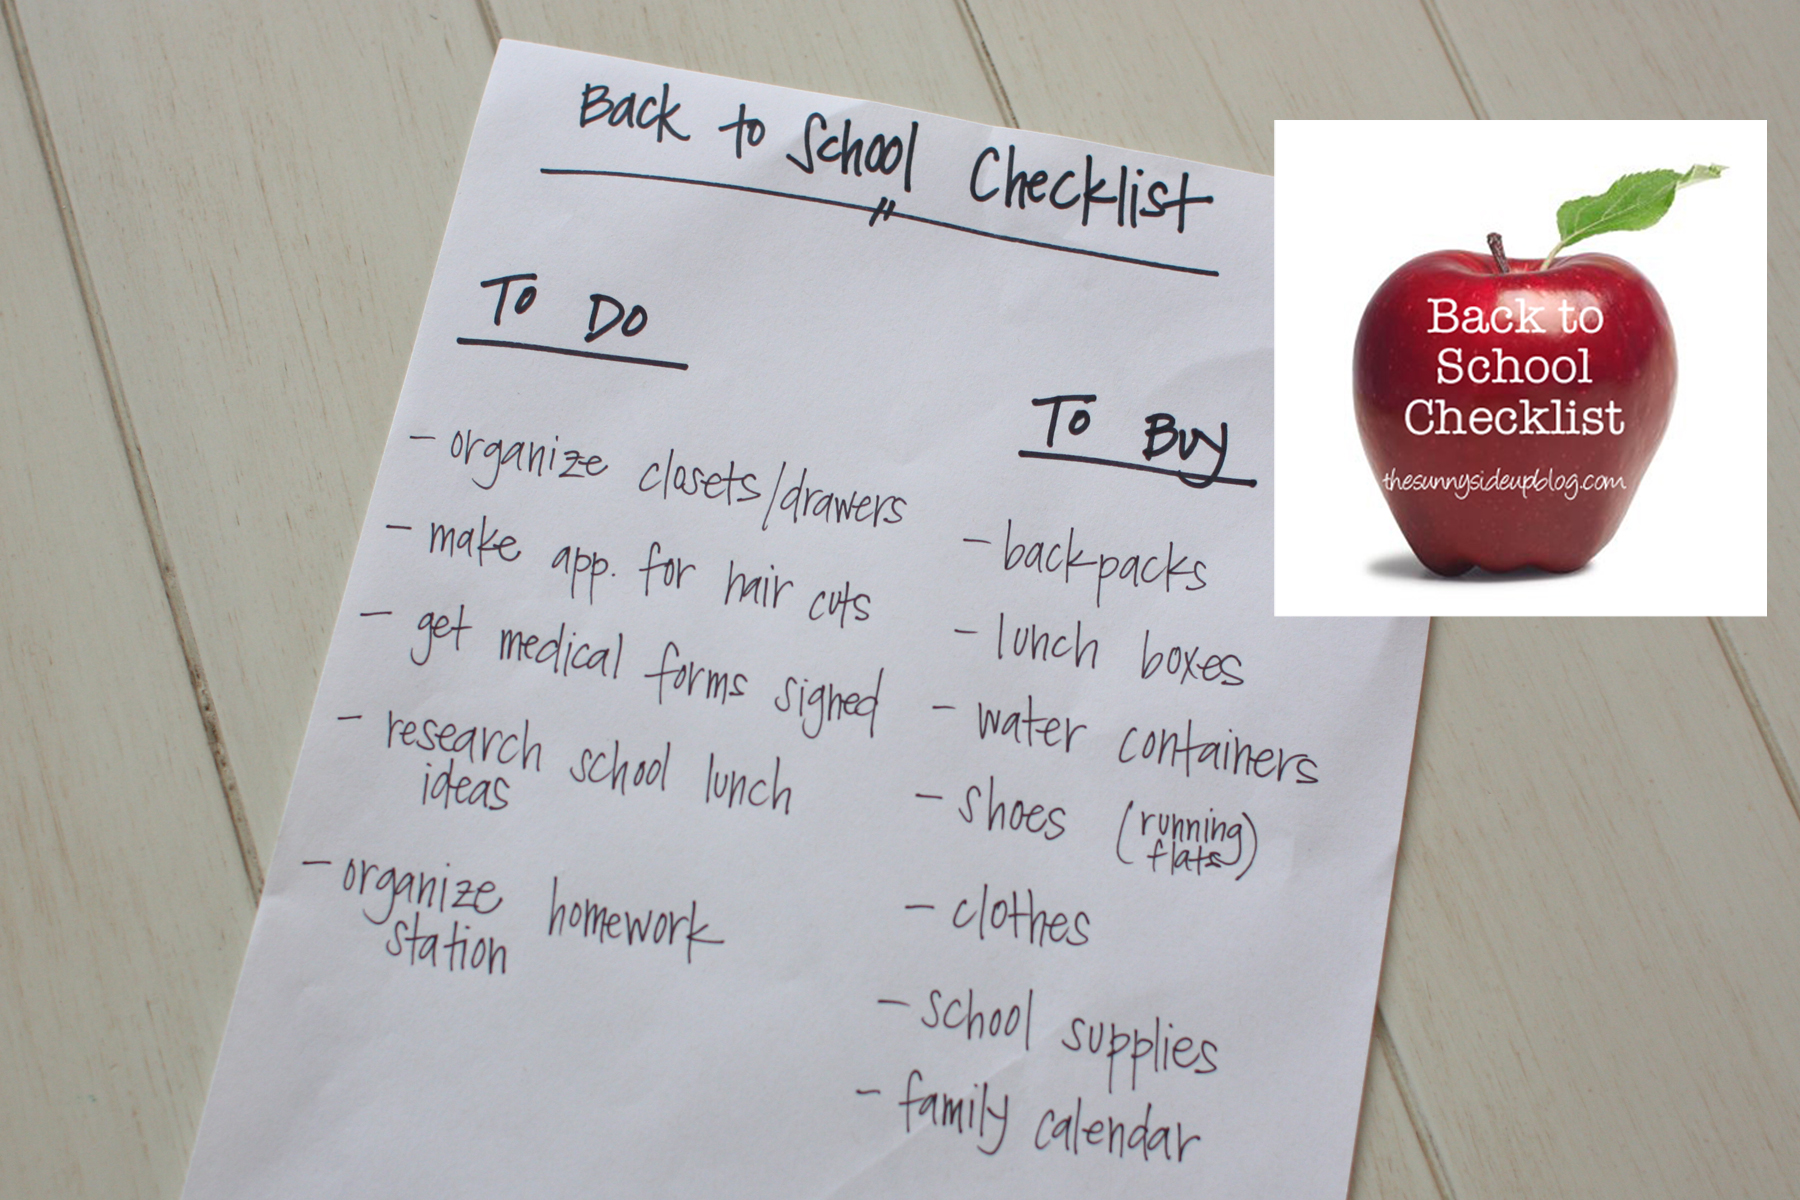 Back to School Checklist
To Do
- organize closets/drawers
- make app. for hair cuts
- get medical forms signed
- research school lunch
ideas
- organize homework
station
To Buy
- backpacks
- lunch boxes
- water containers
- shoes (running
flats)
- clothes
- school supplies
- family calendar
Back to
School
Checklist
thesunnysideupblog.com